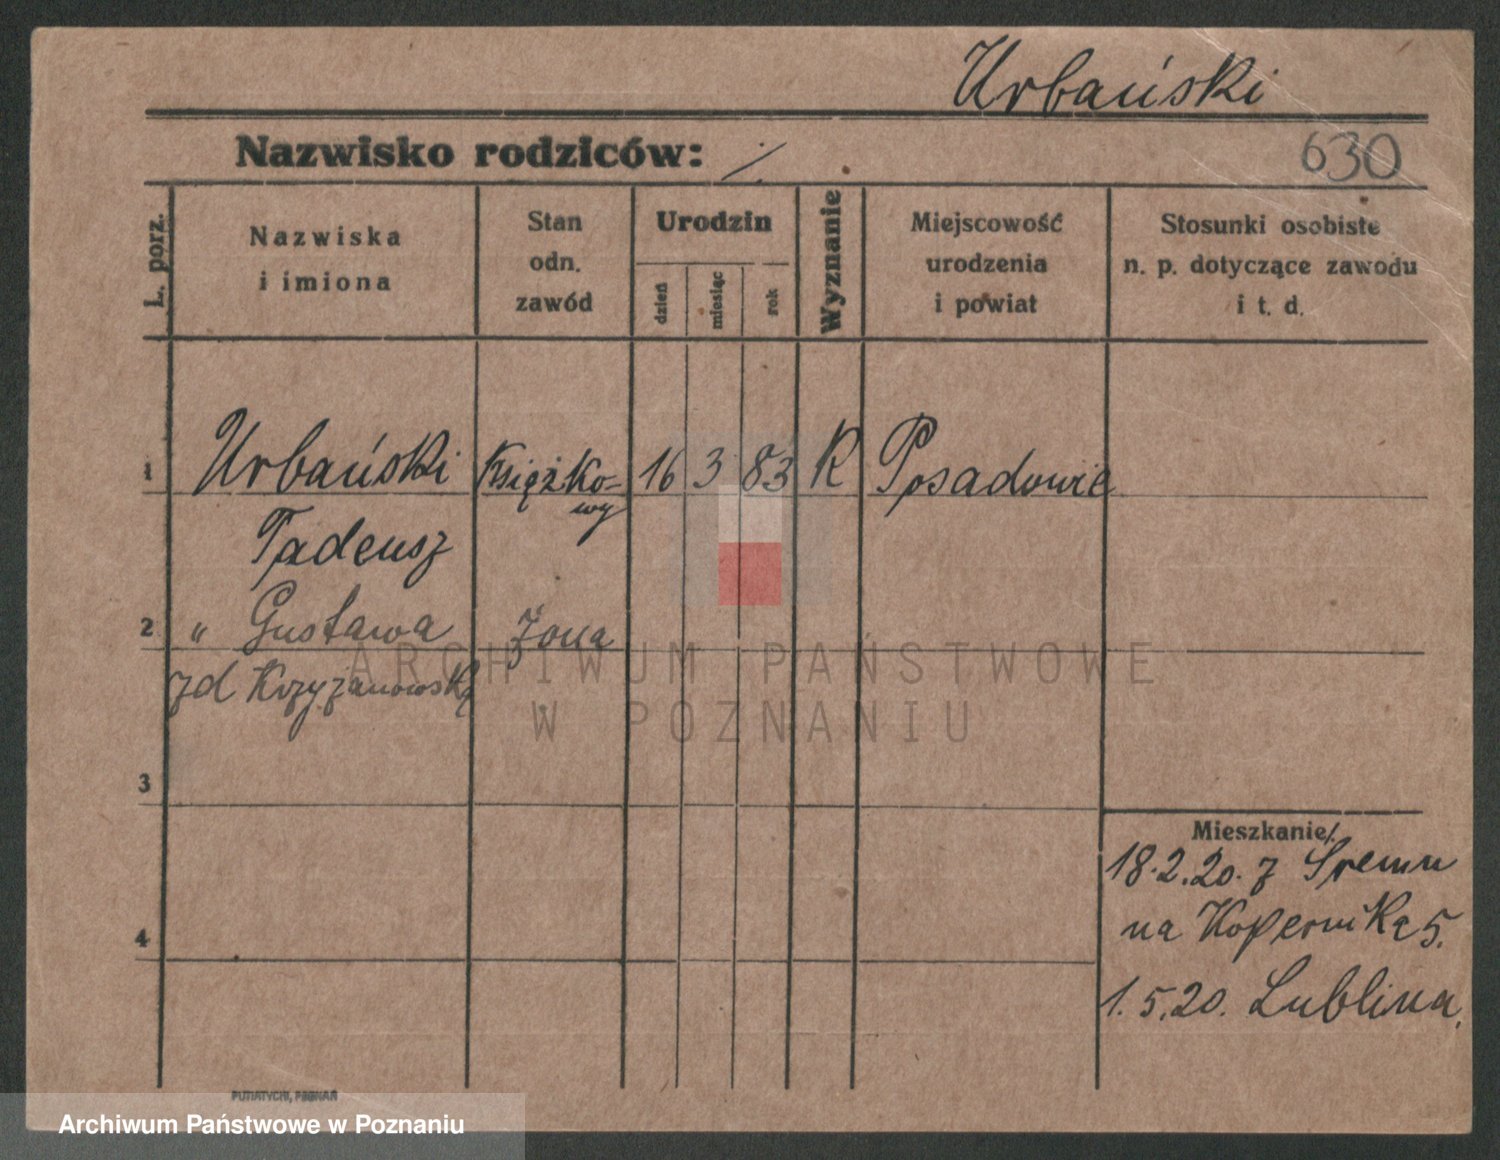 Urbański
Nazwisko rodziców: ⁒
630
L. porz.
Nazwiska
i imiona
Stan
odn.
zawód
Urodzin
dzień
miesiąc
rok
Wyznanie
Miejscowość
urodzenia
i powiat
Stosunki osobiste
n. p. dotyczące zawodu
i t. d.
1 Urbański Książko- 16 3 83 R Posadowie
wy
Tadeusz
2 " Gustawa żona
zd Krzyżanowską
ARCHIWUM PAŃSTWOWE
W POZNANIU
3
Mieszkanie
18.2.20. z Śremu
4
na Kopernika 5.
1.5.20. Lublina.
PUTIATYCKI, POZNAŃ
Archiwum Państwowe w Poznaniu